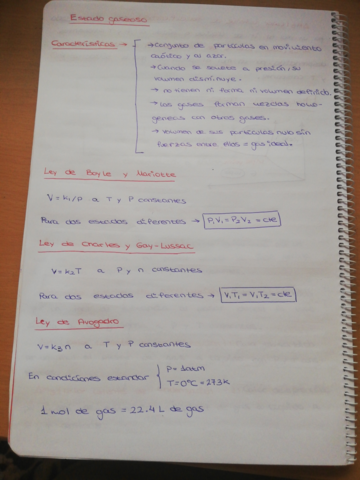 Estado gaseoso
Características →
→ Conjunto de partículas en movimiento
caótico y al azar.
→ Cuando se somete a presión, su
volumen disminuye.
→ no tienen ni forma ni volumen definido
→ los gases forman mezclas homo-
géneas con otros gases.
→ volumen de sus partículas nulo sin
fuerzas entre ellas = gas ideal.
Ley de Boyle y Mariotte
V = k₁/P a T y P constantes
Para dos estados diferentes → P₁V₁ = P₂V₂ = cte
Ley de Charles y Gay-Lussac
V = k₂T a P y n constantes
Para dos estados diferentes → V₁T₁ = V₁T₂ = cte
Ley de Avogadro
V = k₃n a T y P constantes
En condiciones estandar { P = 1atm
T = 0°C = 273k
1 mol de gas = 22.4 L de gas